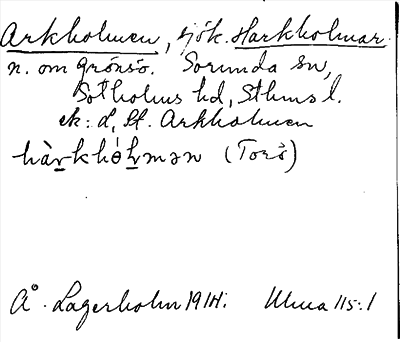 Arkholmen, sjök. Harkholmar.
n. om Grönsö. Sorunda sn,
Sotholms hd, Sthms l.
ek: d, St. Arkholmen
hàrkhòlmən (Torö)
Å. Lagerholm 1914. Muua 115:1